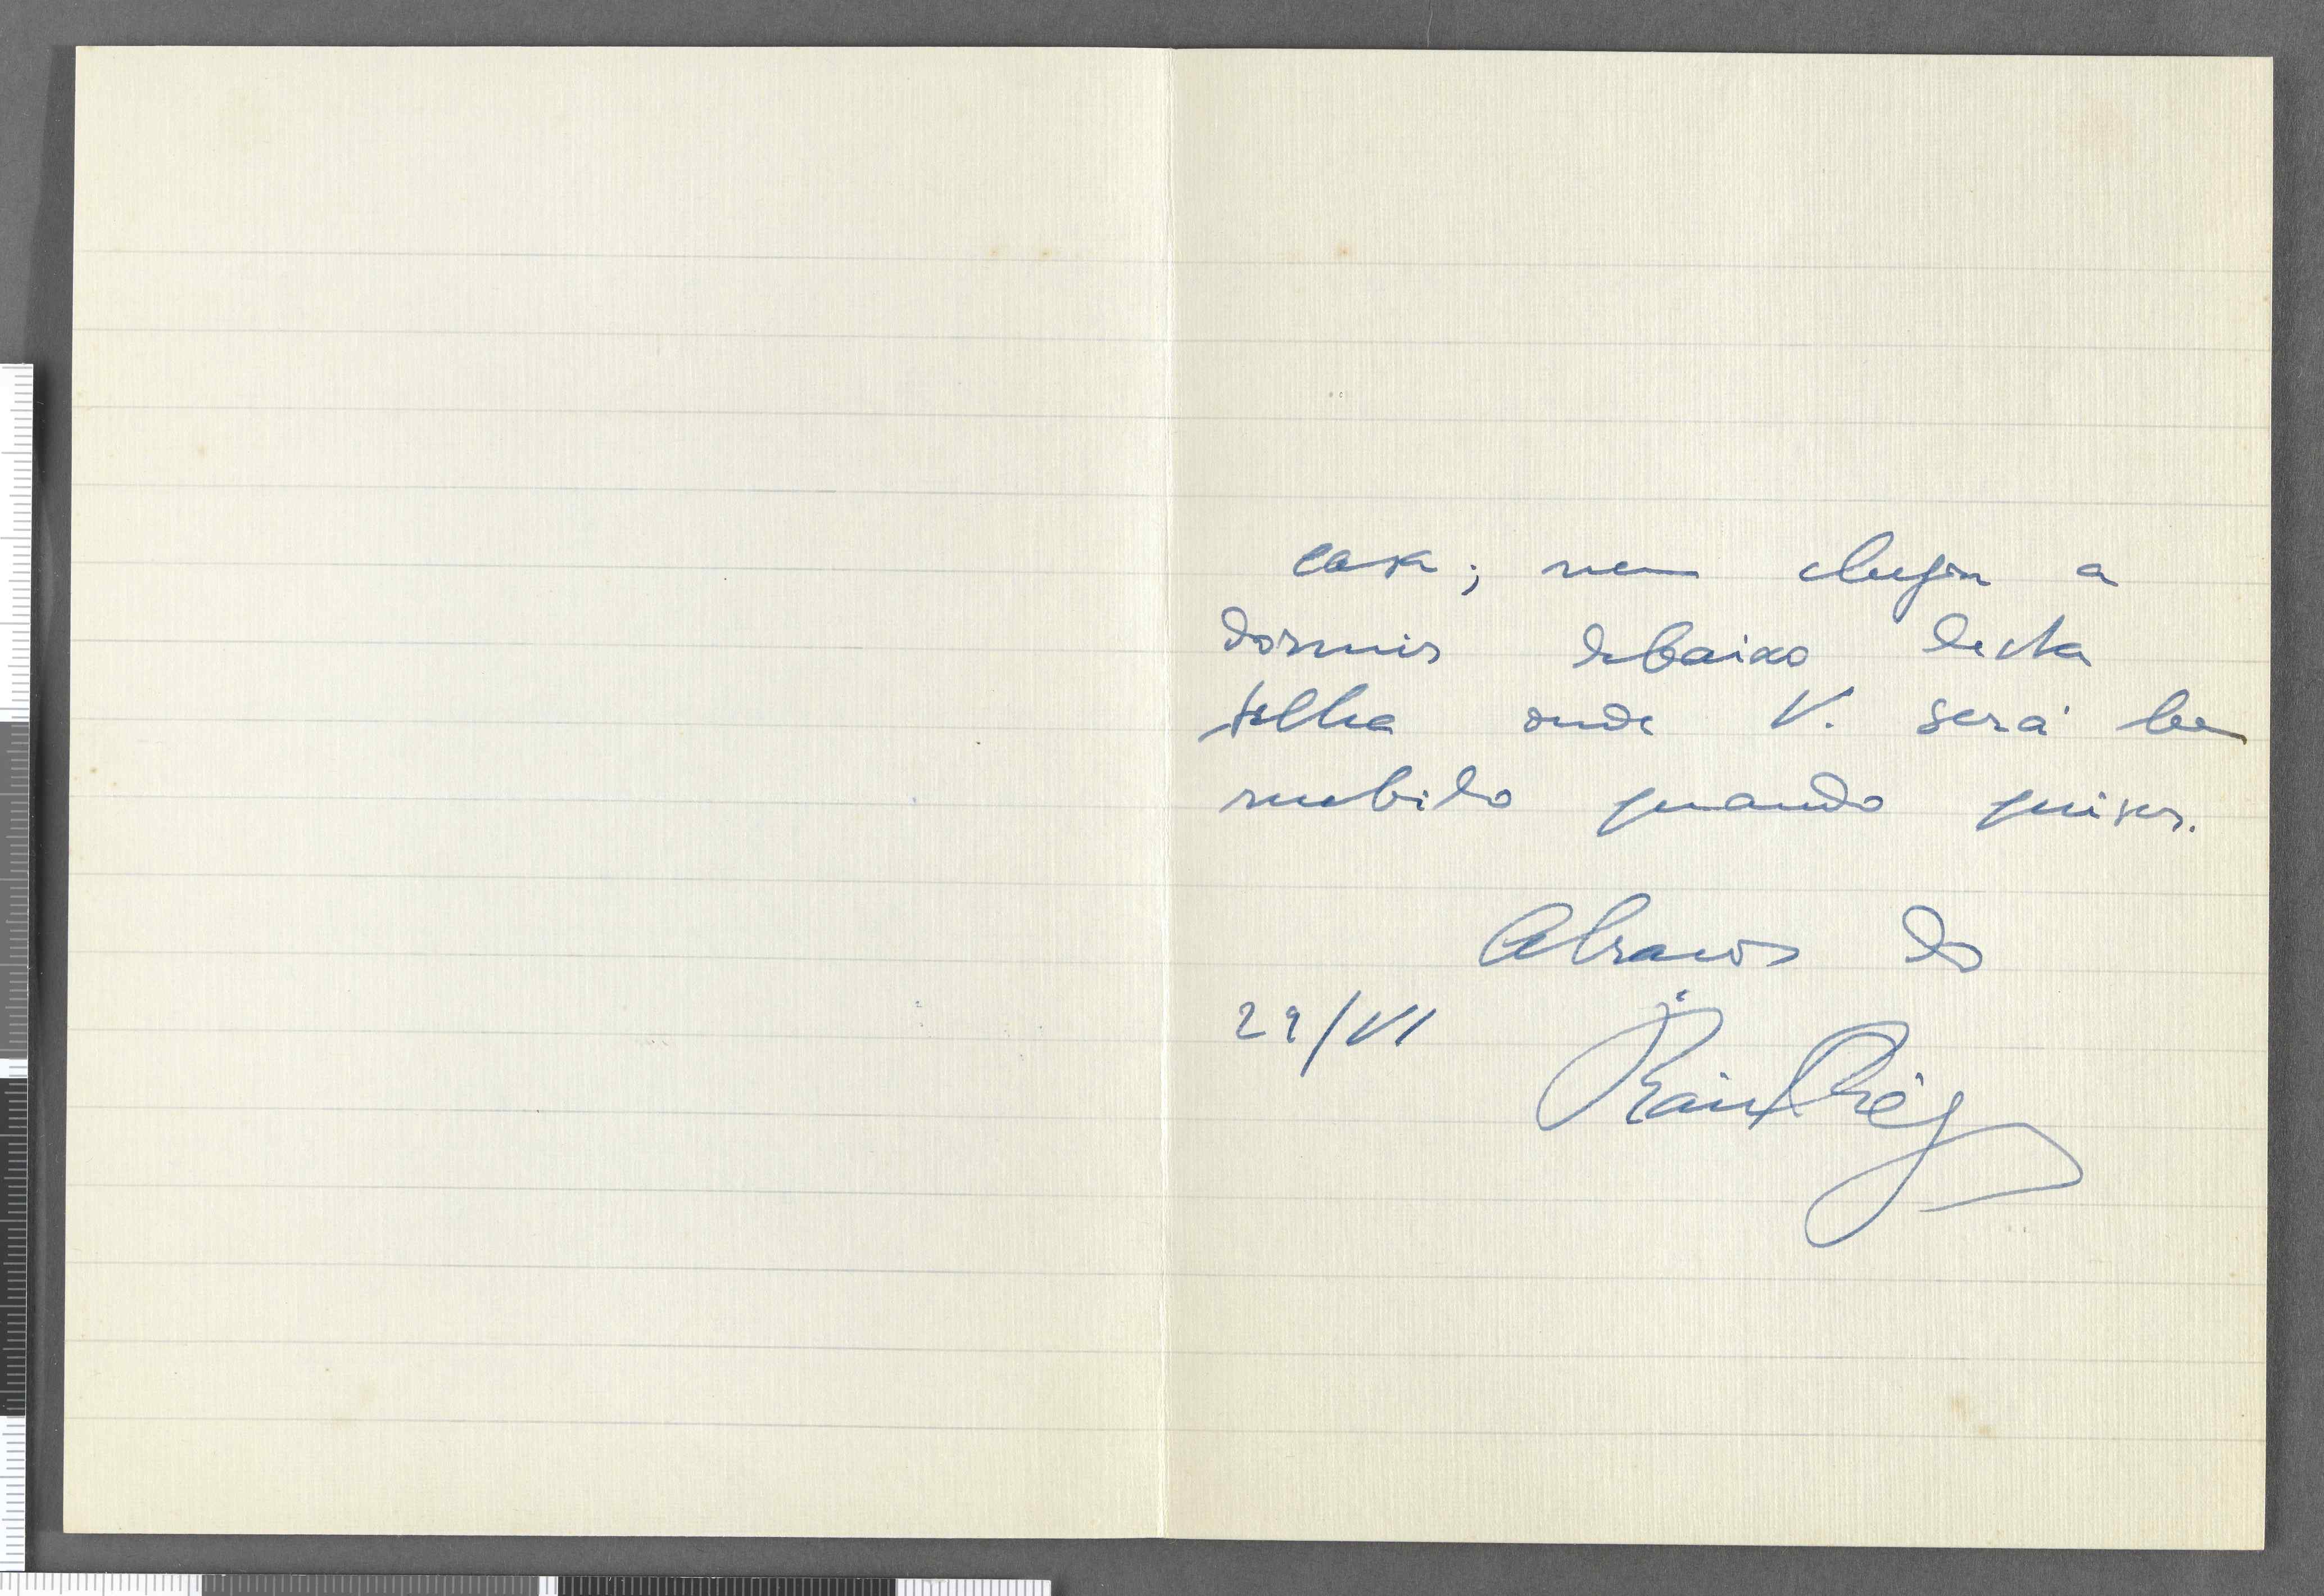 casa; nem chegou a
dormir debaixo desta
telha onde V. será bem
recebido quando quiser.
Abraços do
29/VI